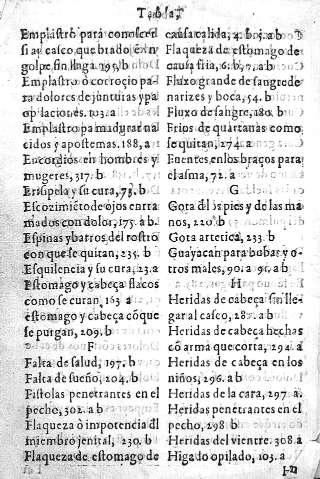 Tabla,
Emplastro para conoscer
si ay casco que brado en
golpe sin llaga. 195, b
Emplastro ò corroçio pa-
ra dolores de jũnturas y pa
oplaciones. 103. a
Emplastro pa madurar na
cidos y apostemas. 188, a
Encordios en hombres y
mugeres, 317. b
Erisipela y su cura, 73. b
Escozimiẽto de ojos enrra
mados con dolor, 175. a b.
Espinas y barros del rostro
con que se quitan, 235. b
Esquilencia y su cura, 23. a
Estomago y cabeça flacos
como se curan, 163 a
estomago y cabeça cõ que
se purgan, 209. b
F
Falta de salud, 197. b
Falta de sueño, 204. b
Fistolas penetrantes en el
peche, 302. a b
Flaqueza ò impotencia dl
miembro jenital, 230. b
Flaqueza de estomago de
causa calida, 4. b 5. a b
Flaqueza de estomago de
causa fria, 6. b, 7. a b
Fluxo grande de sangre de
narizes y boca, 54. b
Fluxo de sangre, 180. b
Frios de quartanas como
se quitan, 274. a
Fuentes en los braços para
el asma, 72. a
G
Gota dl os pies y de las ma
nos, 220. b
Gota artetica, 233. b
Guayacan para bubas y o-
tros males, 90. a 91. a b
H
Heridas de cabeça sin lle-
gar al casco, 287. a b
Heridas de cabeça hechas
cõ arma que corta, 294. a
Heridas de cabeça en los
niños, 296. a b
Heridas de la cara, 297 a.
Heridas penetrantes en el
pecho, 298 b
Heridas del vientre. 308 a
Higado opilado, 103. a